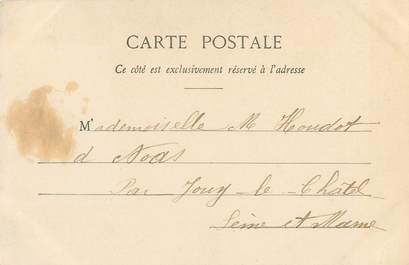 CARTE POSTALE
Ce côté est exclusivement réservé à l'adresse
Mademoiselle M Houdot
d
Par Jouy-le-Châtel
Seine et Marne